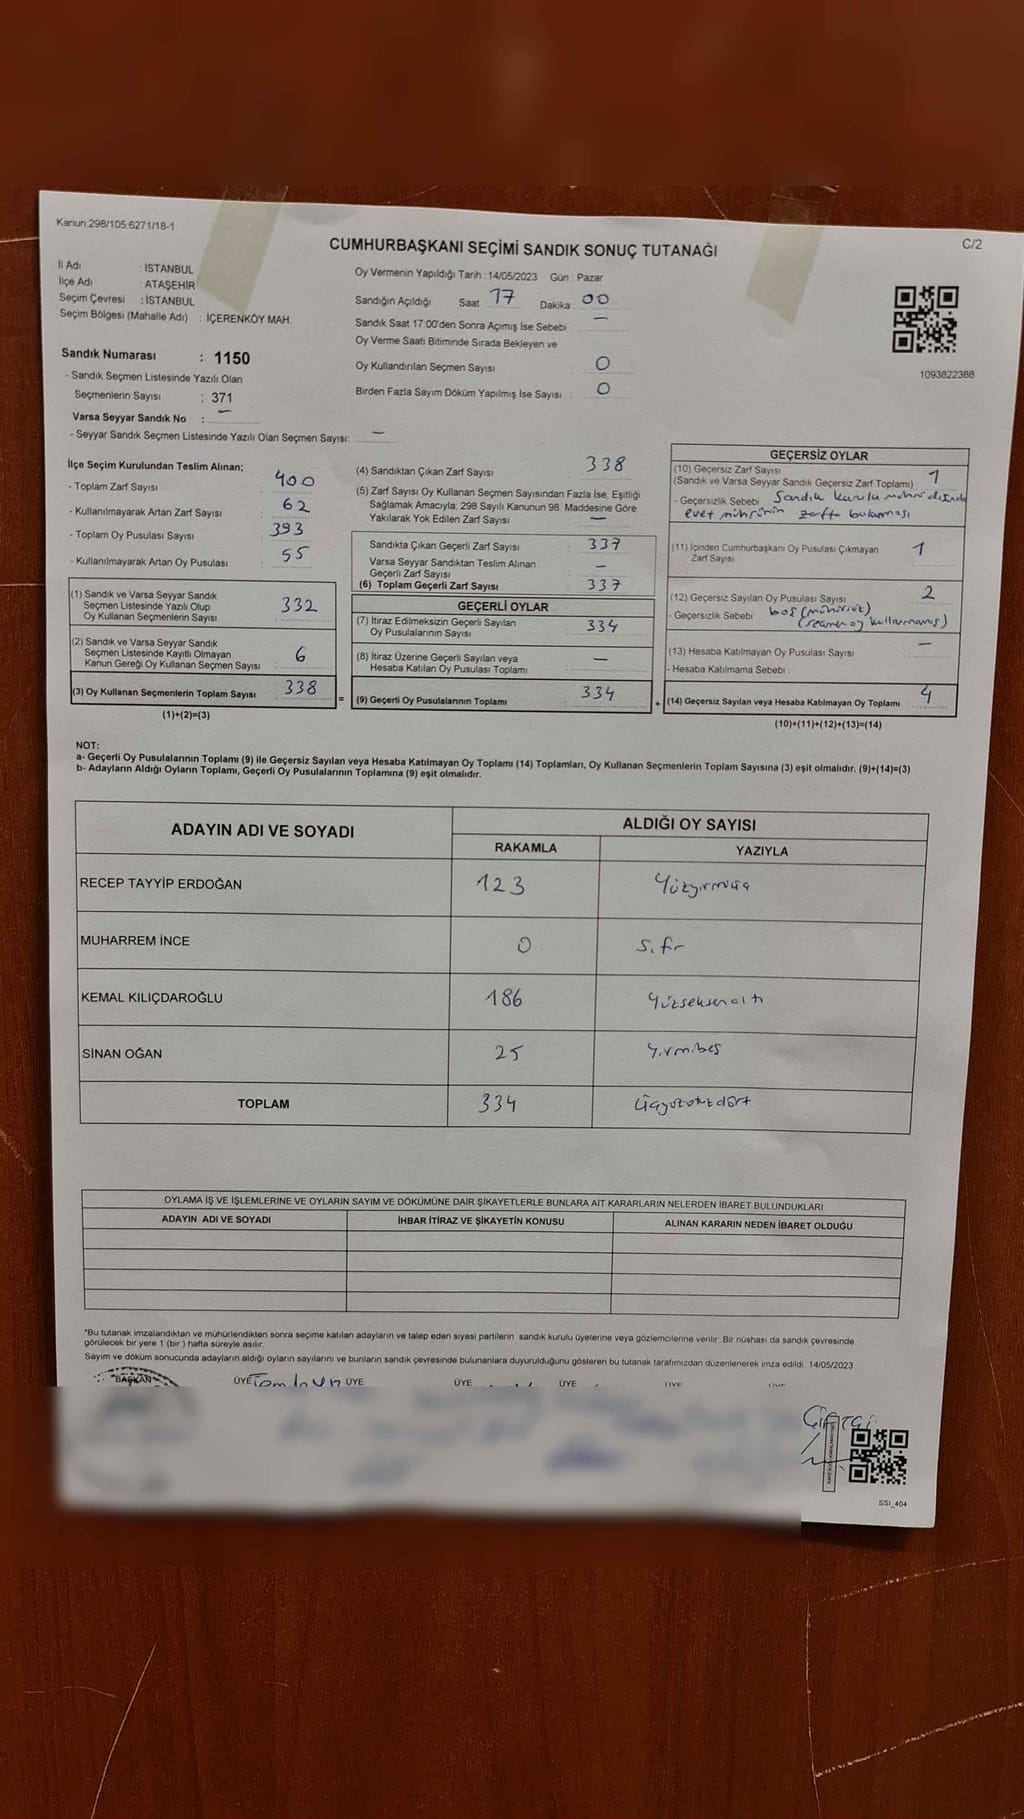 Kanun:298/105,6271/18-1
C/2
CUMHURBAŞKANI SEÇİMİ SANDIK SONUÇ TUTANAĞI
İl Adı : İSTANBUL
İlçe Adı : ATAŞEHİR
Seçim Çevresi : İSTANBUL
Seçim Bölgesi (Mahalle Adı) : İÇERENKÖY MAH.
Oy Vermenin Yapıldığı Tarih : 14/05/2023 Gün : Pazar
Sandığın Açıldığı Saat : 17 Dakika : 00
Sandık Saat 17:00'den Sonra Açımış İse Sebebi : —
Oy Verme Saati Bitiminde Sırada Bekleyen ve
Oy Kullandırılan Seçmen Sayısı : 0
Birden Fazla Sayım Döküm Yapılmış İse Sayısı : 0
1093822388
Sandık Numarası : 1150
- Sandık Seçmen Listesinde Yazılı Olan
Seçmenlerin Sayısı : 371
Varsa Seyyar Sandık No : —
- Seyyar Sandık Seçmen Listesinde Yazılı Olan Seçmen Sayısı: —
İlçe Seçim Kurulundan Teslim Alınan;
- Toplam Zarf Sayısı : 400
- Kullanılmayarak Artan Zarf Sayısı : 62
- Toplam Oy Pusulası Sayısı : 393
- Kullanılmayarak Artan Oy Pusulası : 55
(1) Sandık ve Varsa Seyyar Sandık
Seçmen Listesinde Yazılı Olup
Oy Kullanan Seçmenlerin Sayısı : 332
(2) Sandık ve Varsa Seyyar Sandık
Seçmen Listesinde Kayıtlı Olmayan
Kanun Gereği Oy Kullanan Seçmen Sayısı : 6
(3) Oy Kullanan Seçmenlerin Toplam Sayısı : 338
(1)+(2)=(3)
(4) Sandıktan Çıkan Zarf Sayısı : 338
(5) Zarf Sayısı Oy Kullanan Seçmen Sayısından Fazla İse, Eşitliği
Sağlamak Amacıyla; 298 Sayılı Kanunun 98. Maddesine Göre
Yakılarak Yok Edilen Zarf Sayısı : —
Sandıkta Çıkan Geçerli Zarf Sayısı : 337
Varsa Seyyar Sandıktan Teslim Alınan
Geçerli Zarf Sayısı : —
(6) Toplam Geçerli Zarf Sayısı : 337
GEÇERLİ OYLAR
(7) İtiraz Edilmeksizin Geçerli Sayılan
Oy Pusulalarının Sayısı : 334
(8) İtiraz Üzerine Geçerli Sayılan veya
Hesaba Katılan Oy Pusulası Toplamı : —
= (9) Geçerli Oy Pusulalarının Toplamı : 334
GEÇERSİZ OYLAR
(10) Geçersiz Zarf Sayısı
(Sandık ve Varsa Seyyar Sandık Geçersiz Zarf Toplamı) : 1
- Geçersizlik Sebebi : Sandık kurulu mührü dışında
evet mührünün zarfta bulunması
(11) İçinden Cumhurbaşkanı Oy Pusulası Çıkmayan
Zarf Sayısı : 1
(12) Geçersiz Sayılan Oy Pusulası Sayısı : 2
- Geçersizlik Sebebi : boş (mühürsüz)
(seçmen oy kullanmamış)
(13) Hesaba Katılmayan Oy Pusulası Sayısı : —
- Hesaba Katılmama Sebebi :
+ (14) Geçersiz Sayılan veya Hesaba Katılmayan Oy Toplamı : 4
(10)+(11)+(12)+(13)=(14)
NOT:
a- Geçerli Oy Pusulalarının Toplamı (9) ile Geçersiz Sayılan veya Hesaba Katılmayan Oy Toplamı (14) Toplamları, Oy Kullanan Seçmenlerin Toplam Sayısına (3) eşit olmalıdır. (9)+(14)=(3)
b- Adayların Aldığı Oyların Toplamı, Geçerli Oy Pusulalarının Toplamına (9) eşit olmalıdır.
ADAYIN ADI VE SOYADI
ALDIĞI OY SAYISI
RAKAMLA YAZIYLA
RECEP TAYYİP ERDOĞAN 123 Yüzyirmiüç
MUHARREM İNCE 0 sıfır
KEMAL KILIÇDAROĞLU 186 Yüzseksenaltı
SİNAN OĞAN 25 Yirmibeş
TOPLAM 334 Üçyüzotuzdört
OYLAMA İŞ VE İŞLEMLERİNE VE OYLARIN SAYIM VE DÖKÜMÜNE DAİR ŞİKAYETLERLE BUNLARA AİT KARARLARIN NELERDEN İBARET BULUNDUKLARI
ADAYIN ADI VE SOYADI İHBAR İTİRAZ VE ŞİKAYETİN KONUSU ALINAN KARARIN NEDEN İBARET OLDUĞU
*Bu tutanak imzalandıktan ve mühürlendikten sonra seçime katılan adayların ve talep eden siyasi partilerin sandık kurulu üyelerine veya gözlemcilerine verilir. Bir nüshası da sandık çevresinde
görülecek bir yere 1 (bir) hafta süreyle asılır.
Sayım ve döküm sonucunda adayların aldığı oyların sayılarını ve bunların sandık çevresinde bulunanlara duyurulduğunu gösteren bu tutanak tarafımızdan düzenlenerek imza edildi. 14/05/2023
BAŞKAN ÜYE ÜYE ÜYE ÜYE ÜYE ÜYE
ÇİFTÇİ
SSI_404